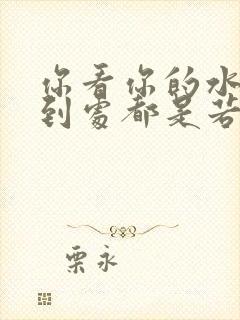 你看你的水
到处都是若
栗永